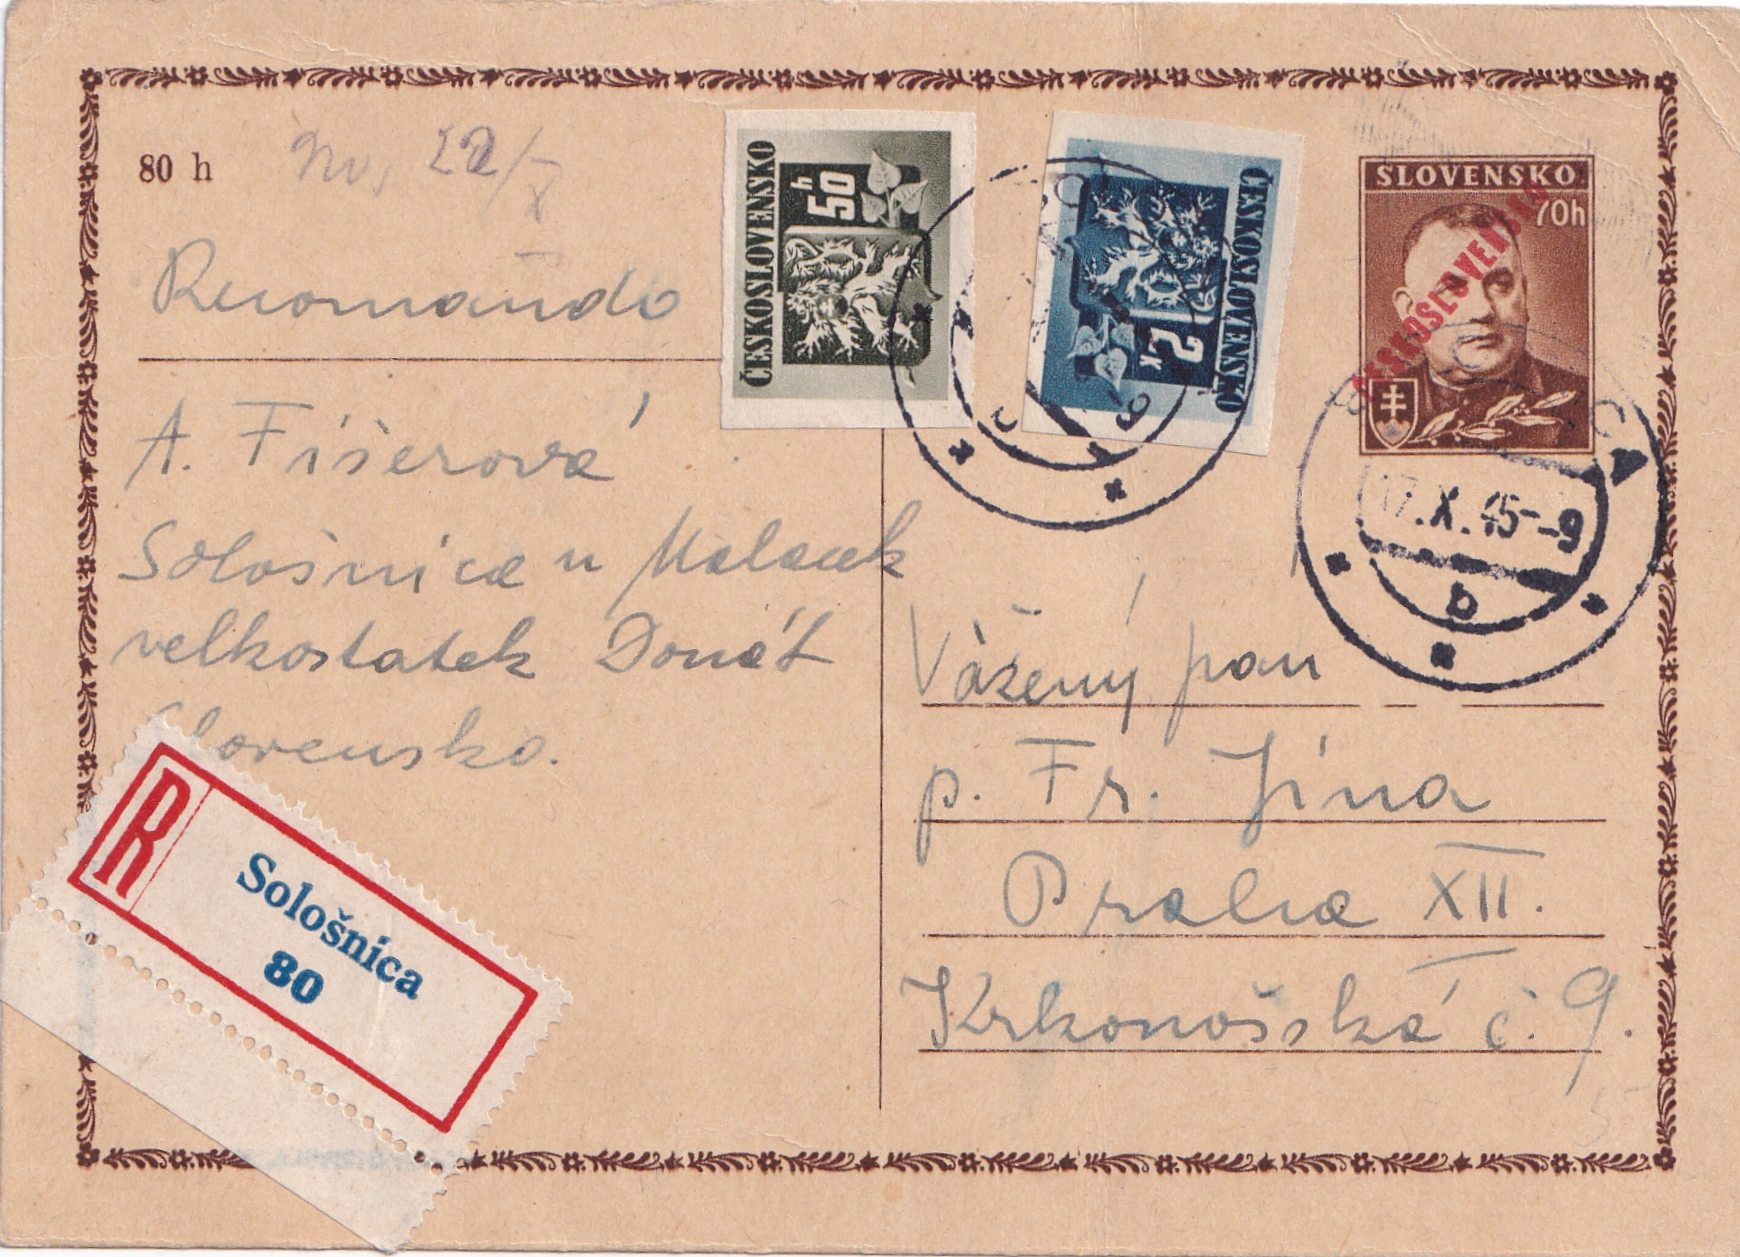 80 h
Recomando
A. Fišerová
Sološnica u Malacek
velkostatek Donát
Slovensko.
R
Sološnica
80
ČESKOSLOVENSKO
50 h
ČESKOSLOVENSKO
2 K
SLOVENSKO
70h
ČESKOSLOVENSKO
17.X.45-9
b
Vážený pan
p. Fr. Jína
Praha XII.
Krkonošská č. 9.